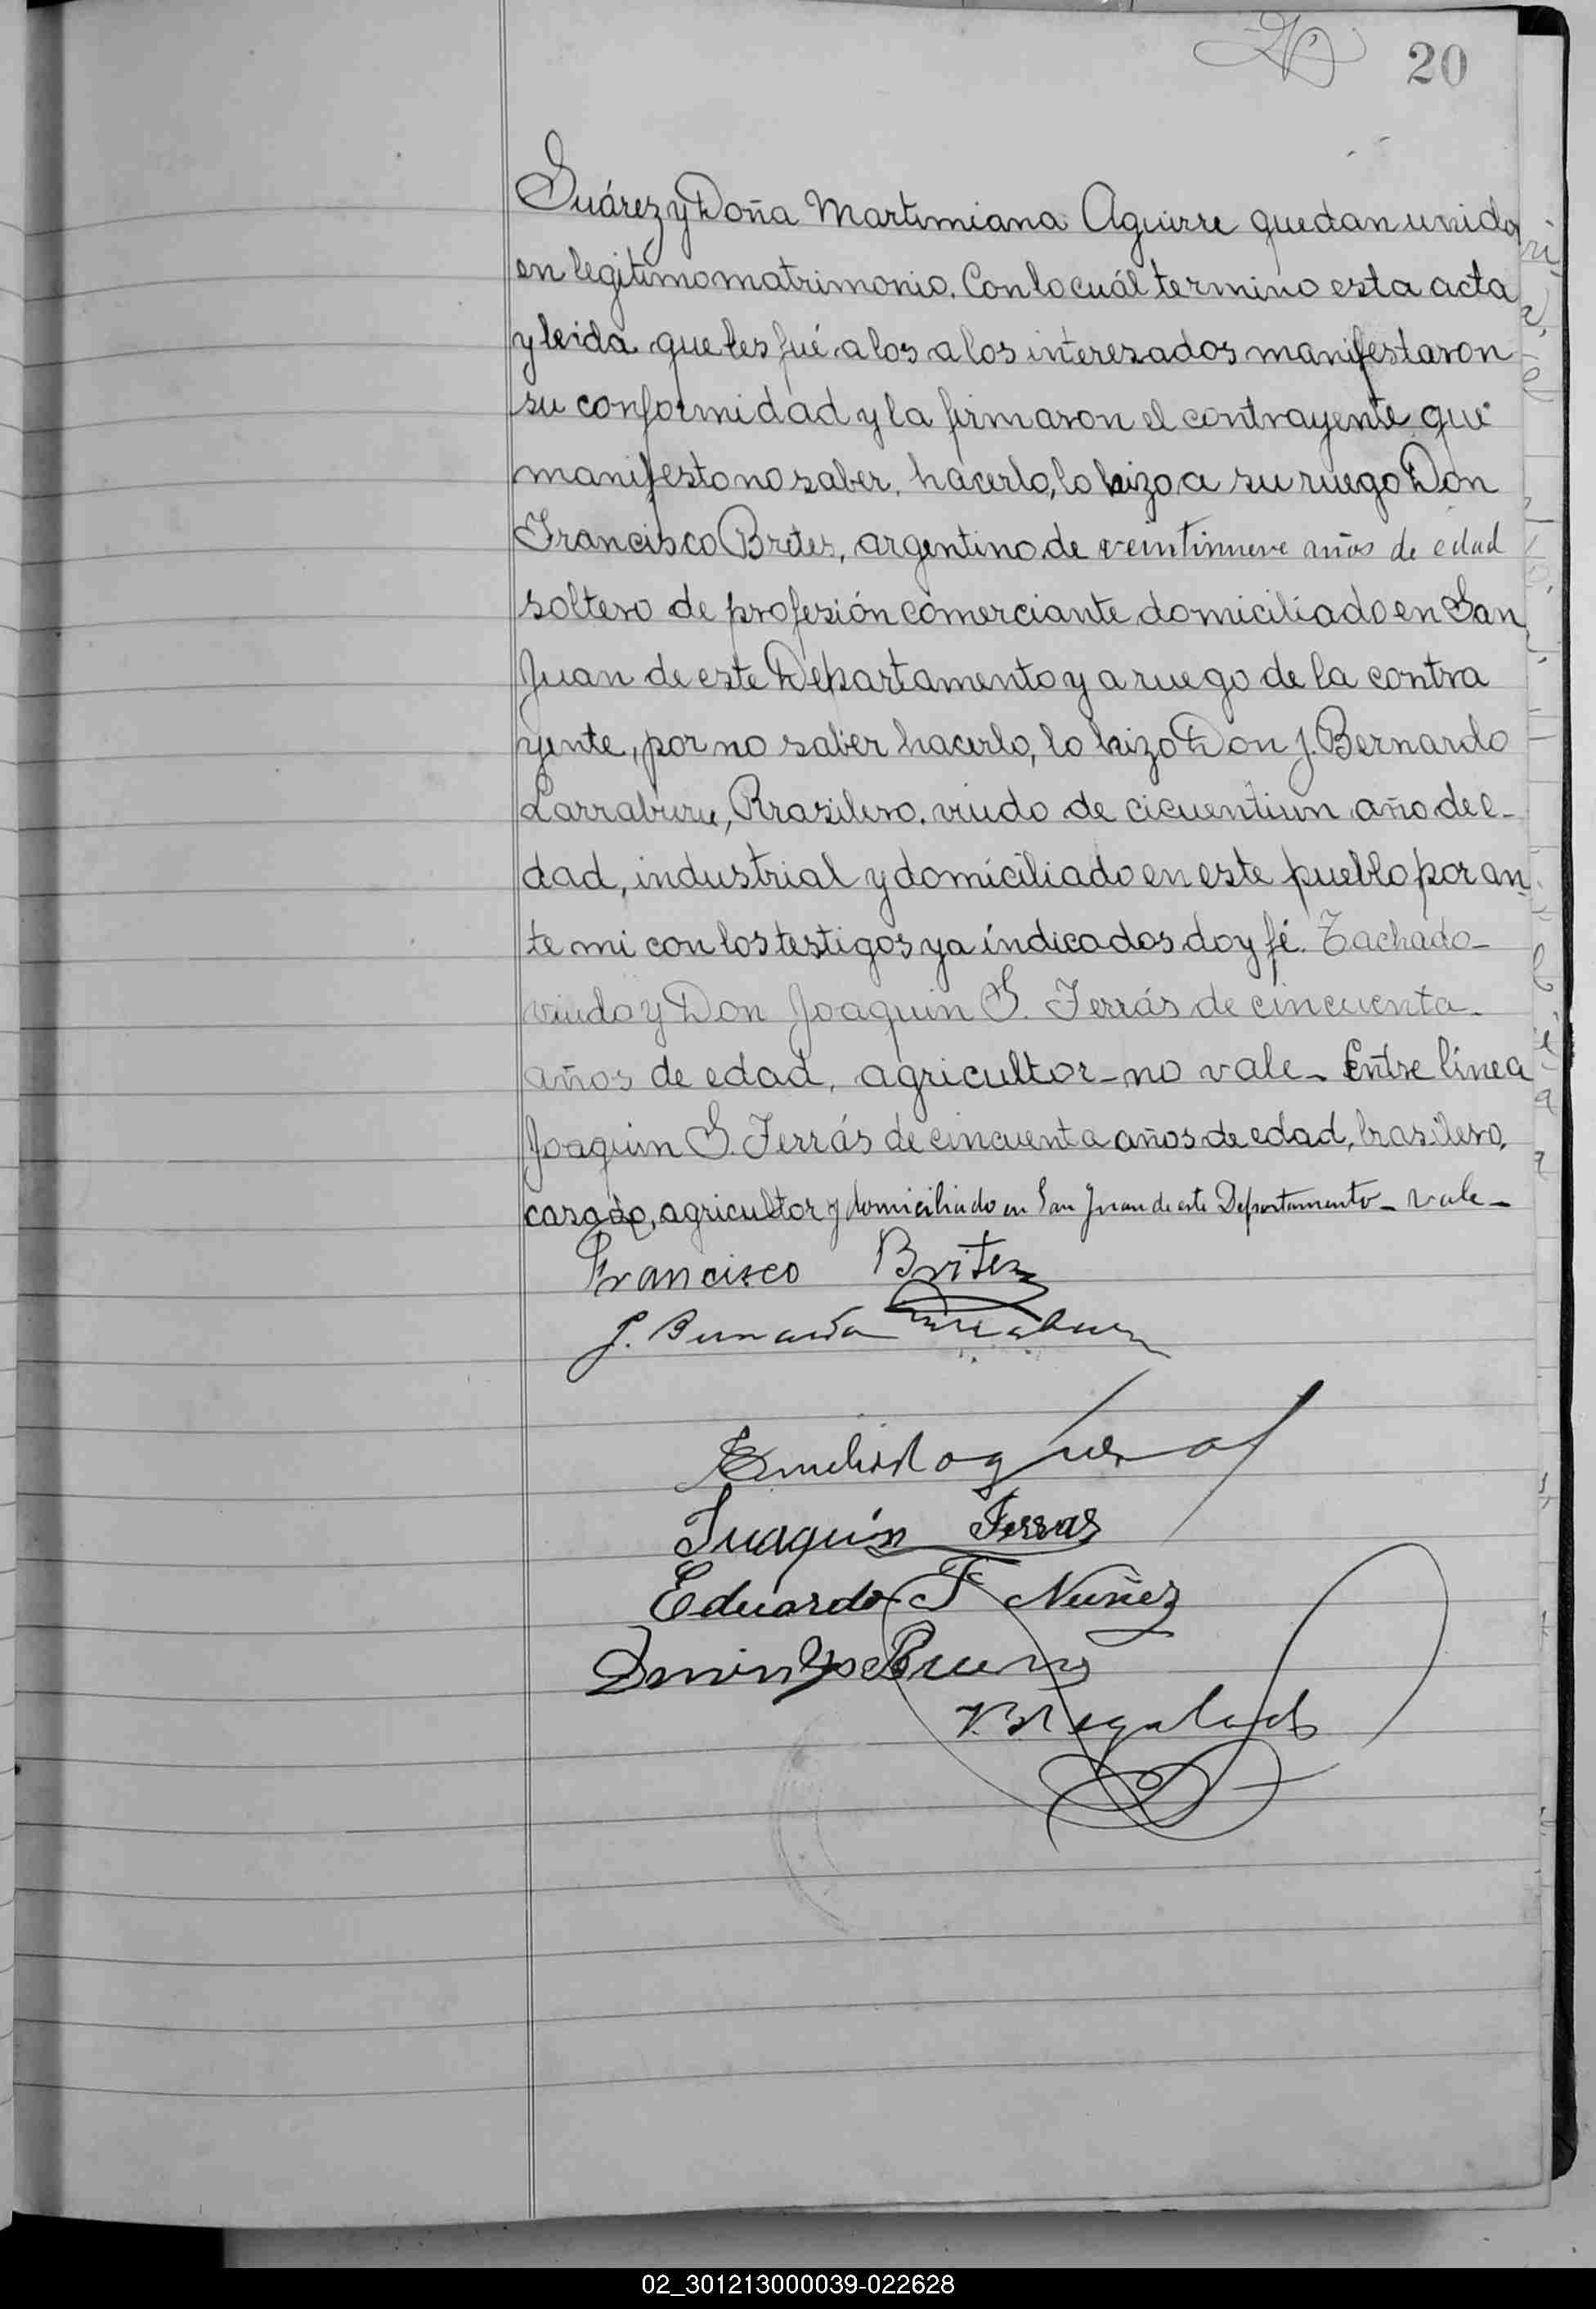 20
Suárez y Doña Martimiana Aguirre quedan unidos
en legitimo matrimonio. Con lo cuál termino esta acta
y leida que les fué a los a los interesados manifestaron
su conformidad y la firmaron el contrayente que
manifesto no saber hacerlo, lo hizo a su ruego Don
Francisco Brites, argentino de veintinueve años de edad
soltero de profesión comerciante domiciliado en San
Juan de este Departamento y a ruego de la contra
yente, por no saber hacerlo, lo hizo Don J. Bernardo
Larraburu, Brasilero, viudo de cicuentiun año de e-
dad, industrial y domiciliado en este pueblo por an
te mi con los testigos ya índicados doy fé. Tachado-
viudo y Don Joaquin S. Ferrás de cincuenta-
años de edad, agricultor-no vale- Entre línea
Joaquin S. Ferrás de cincuenta años de edad, brasilero,
casado, agricultor y domiciliado en San Juan de este Departamento- vale-
Francisco Britez
J. Bernardo Larraburu
Juaquín Ferras
Eduardo F Nuñez
Domingo Bruno
Regalado
02_301213000039-022628